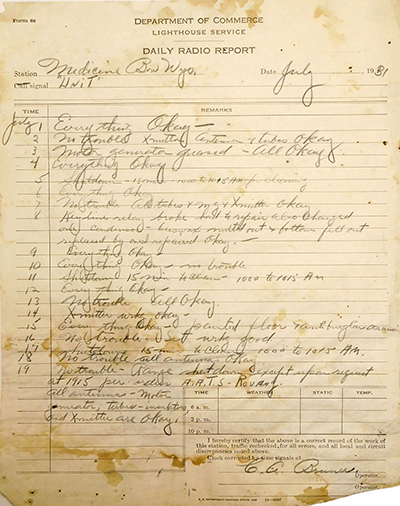 Form 68
DEPARTMENT OF COMMERCE
LIGHTHOUSE SERVICE
DAILY RADIO REPORT
Station Medicine Bow Wyo. Date July , 1931
Call signal "UNIT"
TIME REMARKS
July 1 Everything Okay -
2 No trouble Xmitter Antenna & tubes Okay
3 Motor generator greased - All Okay
4 Everything Okay
5 Shutdown - 15 min - 1000 to 1015 AM for cleaning
6 Everything Okay
7 No trouble All tubes & mg & Xmitter Okay
8 Keying relay broke had to repair also changed
one condenser - melted out & bottom fell out
replaced by one repaired Okay -
9 Everything Okay -
10 Everything Okay - no trouble
11 Shutdown 15 min to clean - 1000 to 1015 AM
12 Everything Okay -
13 No trouble All Okay.
14 Xmitter wrkg okay -
15 Everything Okay - Painted floor
16 No trouble - Set wrkg good
17 Shutdown - 15 min to clean 1000 to 1015 AM.
18 No trouble set antenna Okay
19 No trouble - Range shut down except upon request
at 1915 per orders A.A.T.S -
All antennas - Motor
Generator, tubes -
and Xmitter are Okay.
TIME WEATHER STATIC TEMP.
6 a. m.
2 p. m.
10 p. m.
I hereby certify that the above is a correct record of the work of
this station, traffic rechecked, for all errors, and all local and circuit
discrepancies noted above.
Clock corrected by time signals at
C. A.
Operator.
Operator.